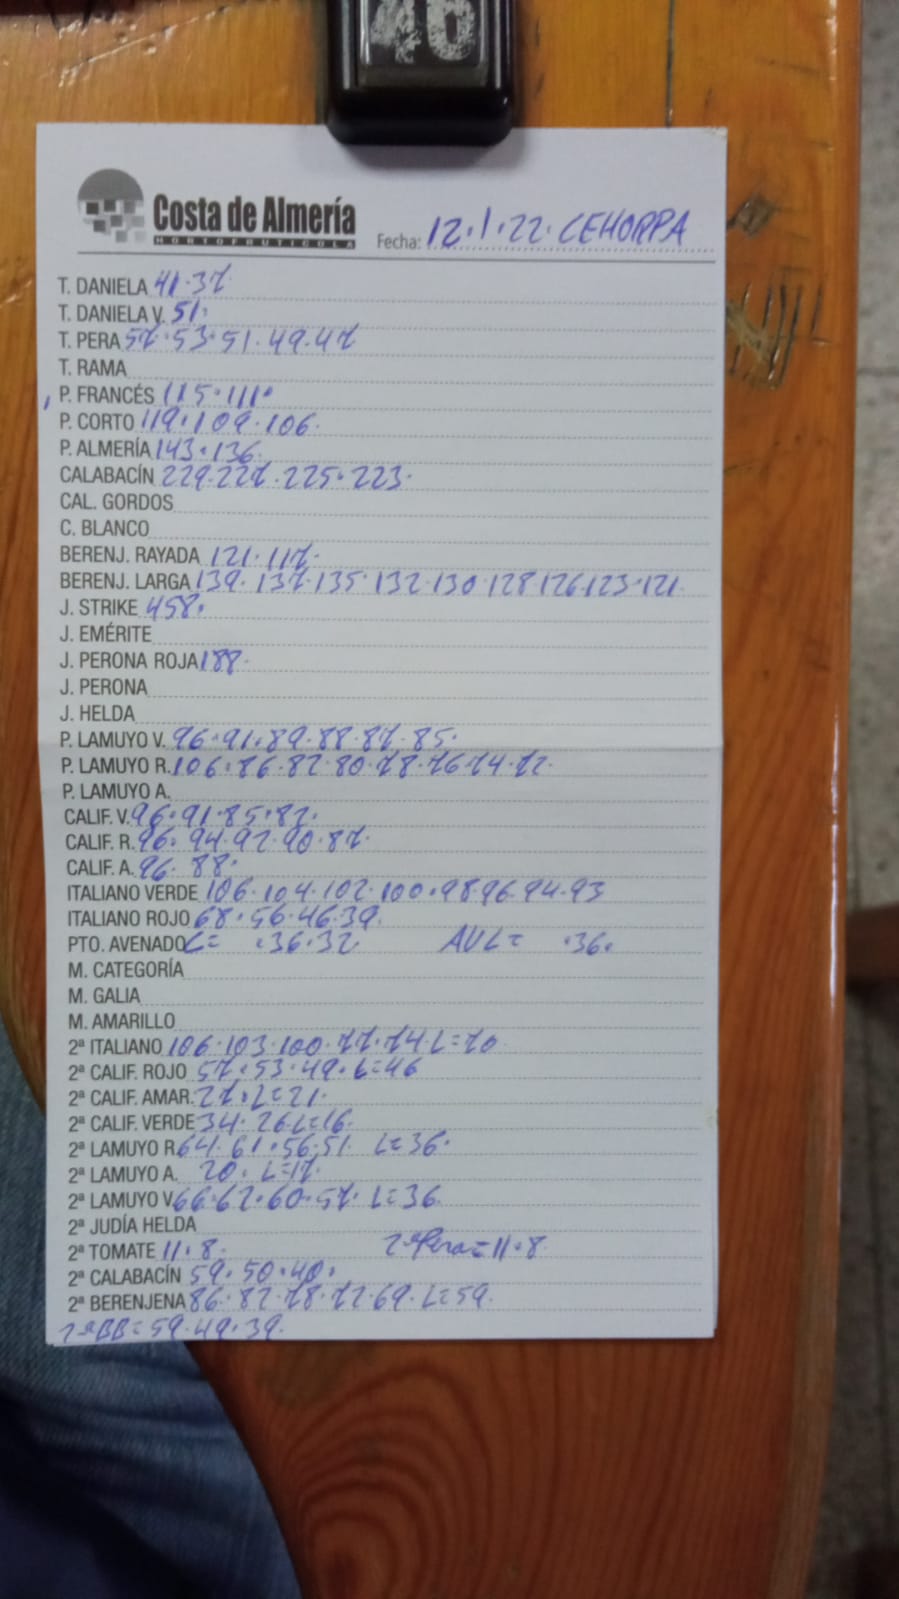 46
Costa de Almería
HORTOFRUTICOLA
Fecha: 12.1.22. CEHORPA
T. DANIELA 41.37
T. DANIELA V. 51.
T. PERA 57.53.51.49.47
T. RAMA
P. FRANCÉS 115.111.
P. CORTO 119.109.106.
P. ALMERÍA 143.136.
CALABACÍN 229.227.225.223.
CAL. GORDOS
C. BLANCO
BERENJ. RAYADA 121.117.
BERENJ. LARGA 139.137.135.132.130.128 126.123.121.
J. STRIKE 458.
J. EMÉRITE
J. PERONA ROJA 188.
J. PERONA
J. HELDA
P. LAMUYO V. 96.91.89.88.87.85.
P. LAMUYO R. 106.86.82.80.78.76.74.72.
P. LAMUYO A.
CALIF. V. 96.91.85.82.
CALIF. R. 96.94.92.90.87.
CALIF. A. 96.88.
ITALIANO VERDE 106.104.102.100.98 96.94.93
ITALIANO ROJO 68.56.46.39.
PTO. AVENADO L= .36.32 AVL= .36.
M. CATEGORÍA
M. GALIA
M. AMARILLO
2ª ITALIANO 106.103.100.77.74.L=70.
2ª CALIF. ROJO 57.53.49.L=46
2ª CALIF. AMAR. 27.L=21.
2ª CALIF. VERDE 34.26.L=16.
2ª LAMUYO R. 64.61.56.51. L=36.
2ª LAMUYO A. 20. L=17.
2ª LAMUYO V. 66.62.60.57. L=36.
2ª JUDÍA HELDA
2ª TOMATE 11.8. 2ª Pera=11.8.
2ª CALABACÍN 59.50.40.
2ª BERENJENA 86.82.78.72.69.L=59.
2ª BB=59.49.39.